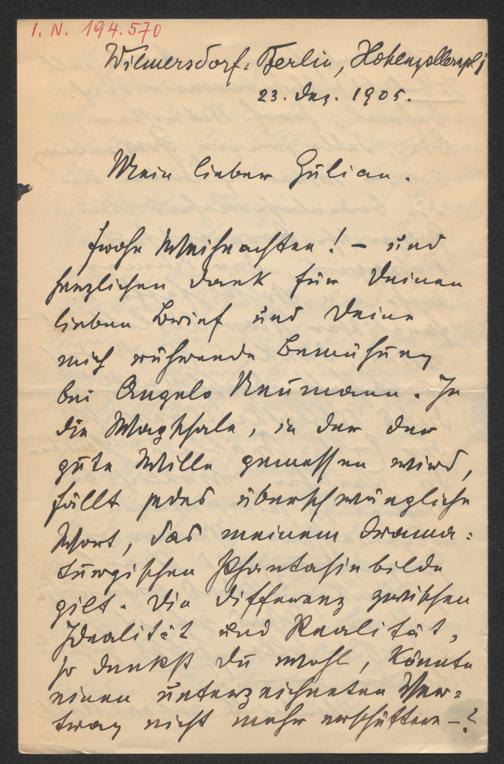 I. N. 194.570
Wilmersdorf-Berlin, Hohenzollernpl
23. Dez. 1905.
Mein lieber Gülian.
Frohe Weihnachten! – und
herzlichen Dank für Deinen
lieben Brief und Deine
mich rührende Bemühung
bei Angelo Neumann. In
die Wagschale, in der der
gute Wille gemessen wird,
fällt jedes überschwängliche
Wort, das meinem drama=
turgischen Phantasiebilde
gilt. Die Differenz zwischen
Idealität und Realität,
so denkst Du wohl, könnte
einen unterzeichneten Ver=
trag nicht mehr erschüttern –?